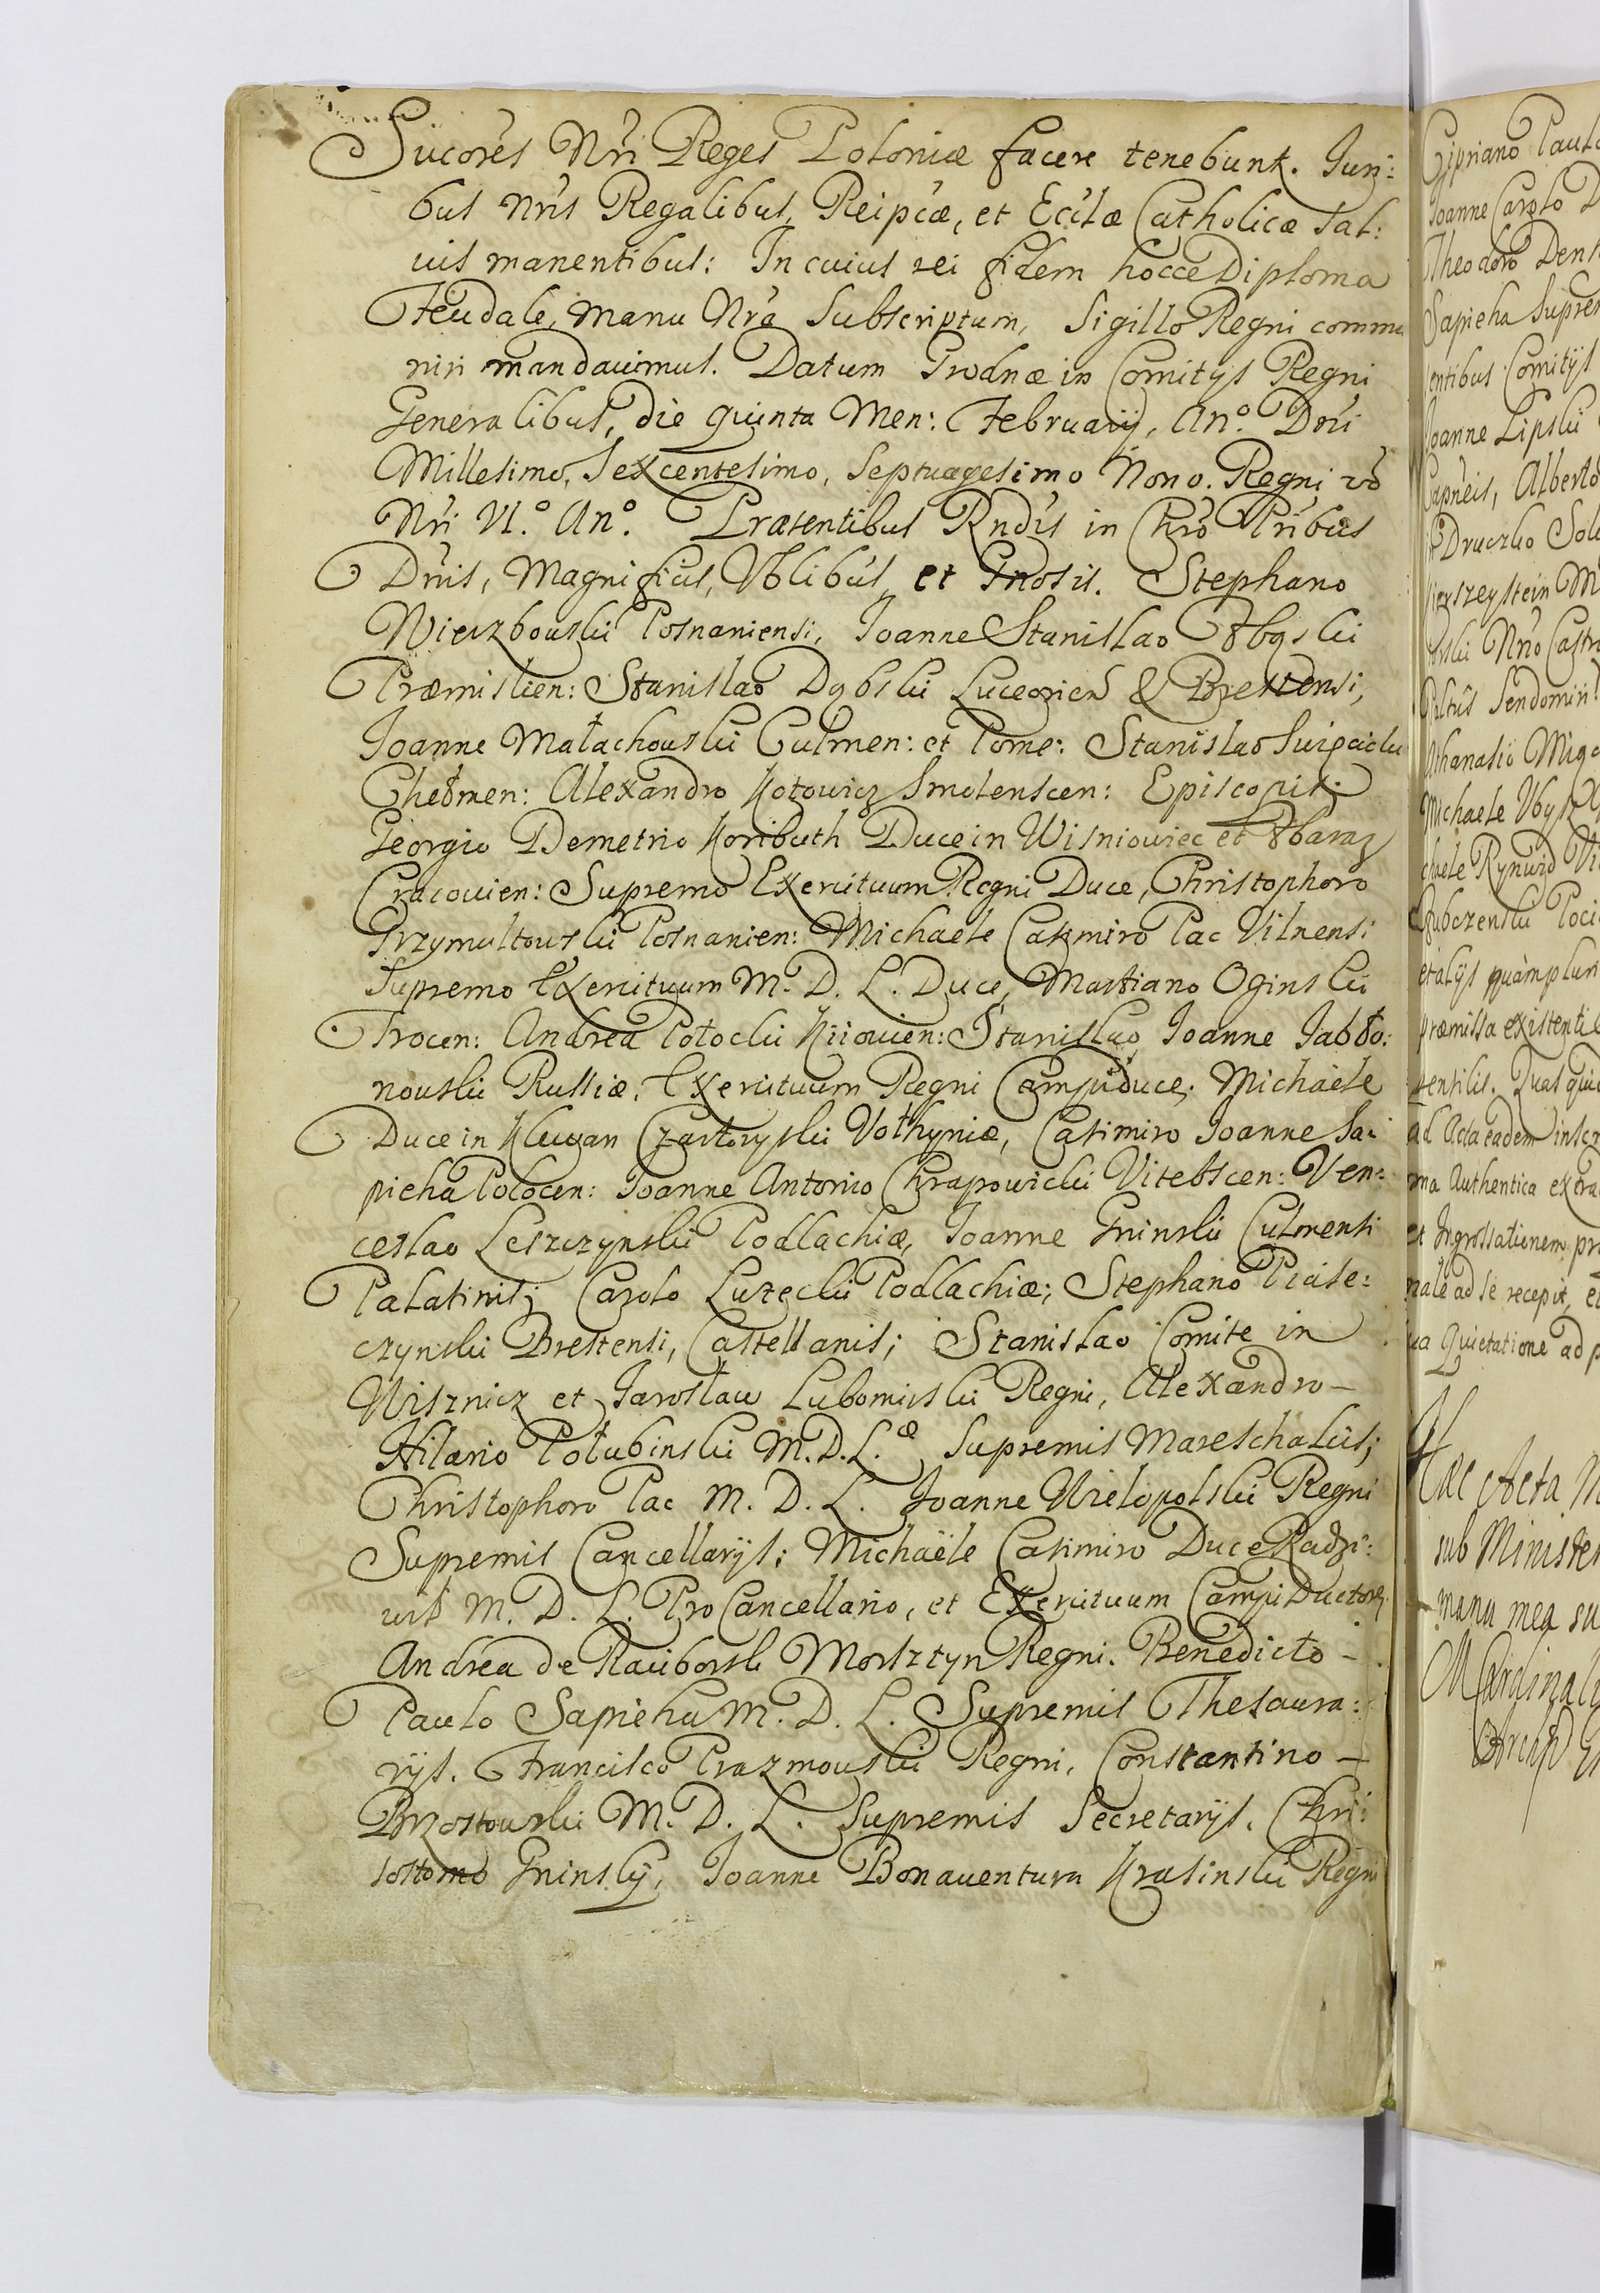 Sucores Nri Reges Poloniæ facere tenebunt. Juri:
bus Nris Regalibus, Reipcæ, et Ecclæ Catholicæ sal:
vis manentibus: In cuius rei fidem hocce Diploma
Feudale, manu Nra Subscriptum, Sigillo Regni commu
niri mandavimus. Datum Grodnæ in Comitijs Regni
Generalibus, die quinta Men: Februarij, Anº. Dni
Millesimo, Sexcentesimo, Septuagesimo Nono. Regni vo
Nri VI.º Anº. Præsentibus Rndis in Chro Pribus
Dnis, Magnificis, Nblibus, et Gnosis. Stephano
Wierzbowski Posnaniensi, Joanne Stanislao Zbąski
Præmislien: Stanislao Dąbski Luceorien & Brestensi,
Joanne Małachowski Culmen: et Pome: Stanislao Swięcicki
Chełmen: Alexandro Kotowicz Smolenscen: Episcopis;
Georgio Demetrio Koributh Duce in Wisniowiec et Zbaraz
Cracovien: Supremo Exercituum Regni Duce, Christophoro
Grzymultowski Posnanien: Michaële Casimiro Pac Vilnensi
Supremo Exercituum M. D. L. Duce, Martiano Oginski
Trocen: Andrea Potocki Kiiovien: Stanislao Joanne Jabło:
nowski Russiæ, Exercituum Regni Campiduce; Michaële
Duce in Klewan Czartoryski Vołhyniæ, Casimiro Joanne Sa:
pieha Polocen: Joanne Antonio Chrapowicki Vitebscen: Ven:
ceslao Leszczynski Podlachiæ, Joanne Gninski Culmensi
Palatinis; Carolo Luzecki Podlachiæ; Stephano Piase:
czynski Brestensi, Castellanis; Stanislao Comite in
Wisznicz et Jarosław Lubomirski Regni, Alexandro –
Hilario Połubinski M. D. L.æ Supremis Mareschalcis;
Christophoro Pac M. D. L. Joanne Wielopolski Regni
Supremis Cancellarijs; Michaële Casimiro Duce Radzi:
wił M. D. L. Pro Cancellario, et Exercituum Campi Ductore,
Andrea de Raciborsk Morsztyn Regni. Benedicto –
Paulo Sapieha M. D. L. Supremis Thesaura:
rijs. Francisco Prazmowski Regni, Constantino –
Brzostowski M. D. L. Supremis Secretarijs. Chri:
sostomo Gninskij, Joanne Bonaventura Krasinski Regni
Cipriano Paulo
Joanne Carolo D
Theodoro Denh
Sapieha Suprem
sentibus Comitijs
Joanne Lipski
Capneis, Alberto
Druczko Sol
M
Nro Castr
Sendomiri
Athanasio Miąc
Michaele
chaele Rynwid Vi
Poci
et alijs quàmplur
præmissa existentib
sentibus. Quas quid
ad Acta eadem inscr
ma Authentica extra
et Ingrossationem pr
nale ad se recepit, et
ua Quietatione ad p
Hæc Acta
sub Minister
manu mea su